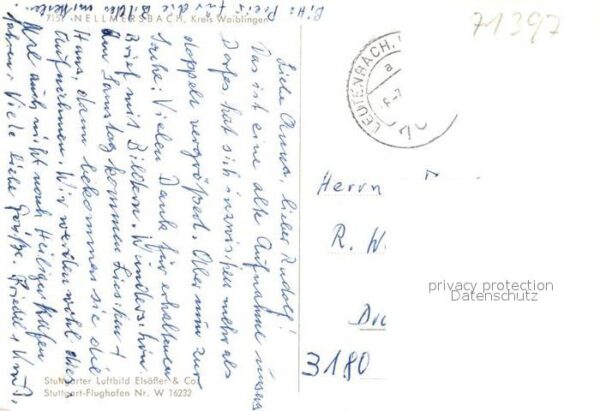 71397
7151 NELLMERSBACH, Kreis Waiblingen
Bitte Preis für die Bilder mitteilen
Liebe Anna, lieber Rudolf!
Das ist eine alte Aufnahme
Dorfes hat sich inzwischen mehr als
doppelt vergrößert. Aber nun zur
Sache: Vielen Dank für erhaltenen
Brief mit Bildern. Wunderschön.
Am Samstag kommen +
Hans, dann bekommen sie die
Aufnahmen. Wir werden wohl dieses
Jahr auch nicht nach Heiligenhafen
fahren. Viele liebe Grüße
LEUTENBACH,
a
70
Herrn
R. W.
privacy protection
Datenschutz
3180
Stuttgarter Luftbild Elsäßer & Co.
Stuttgart-Flughafen Nr. W 16232